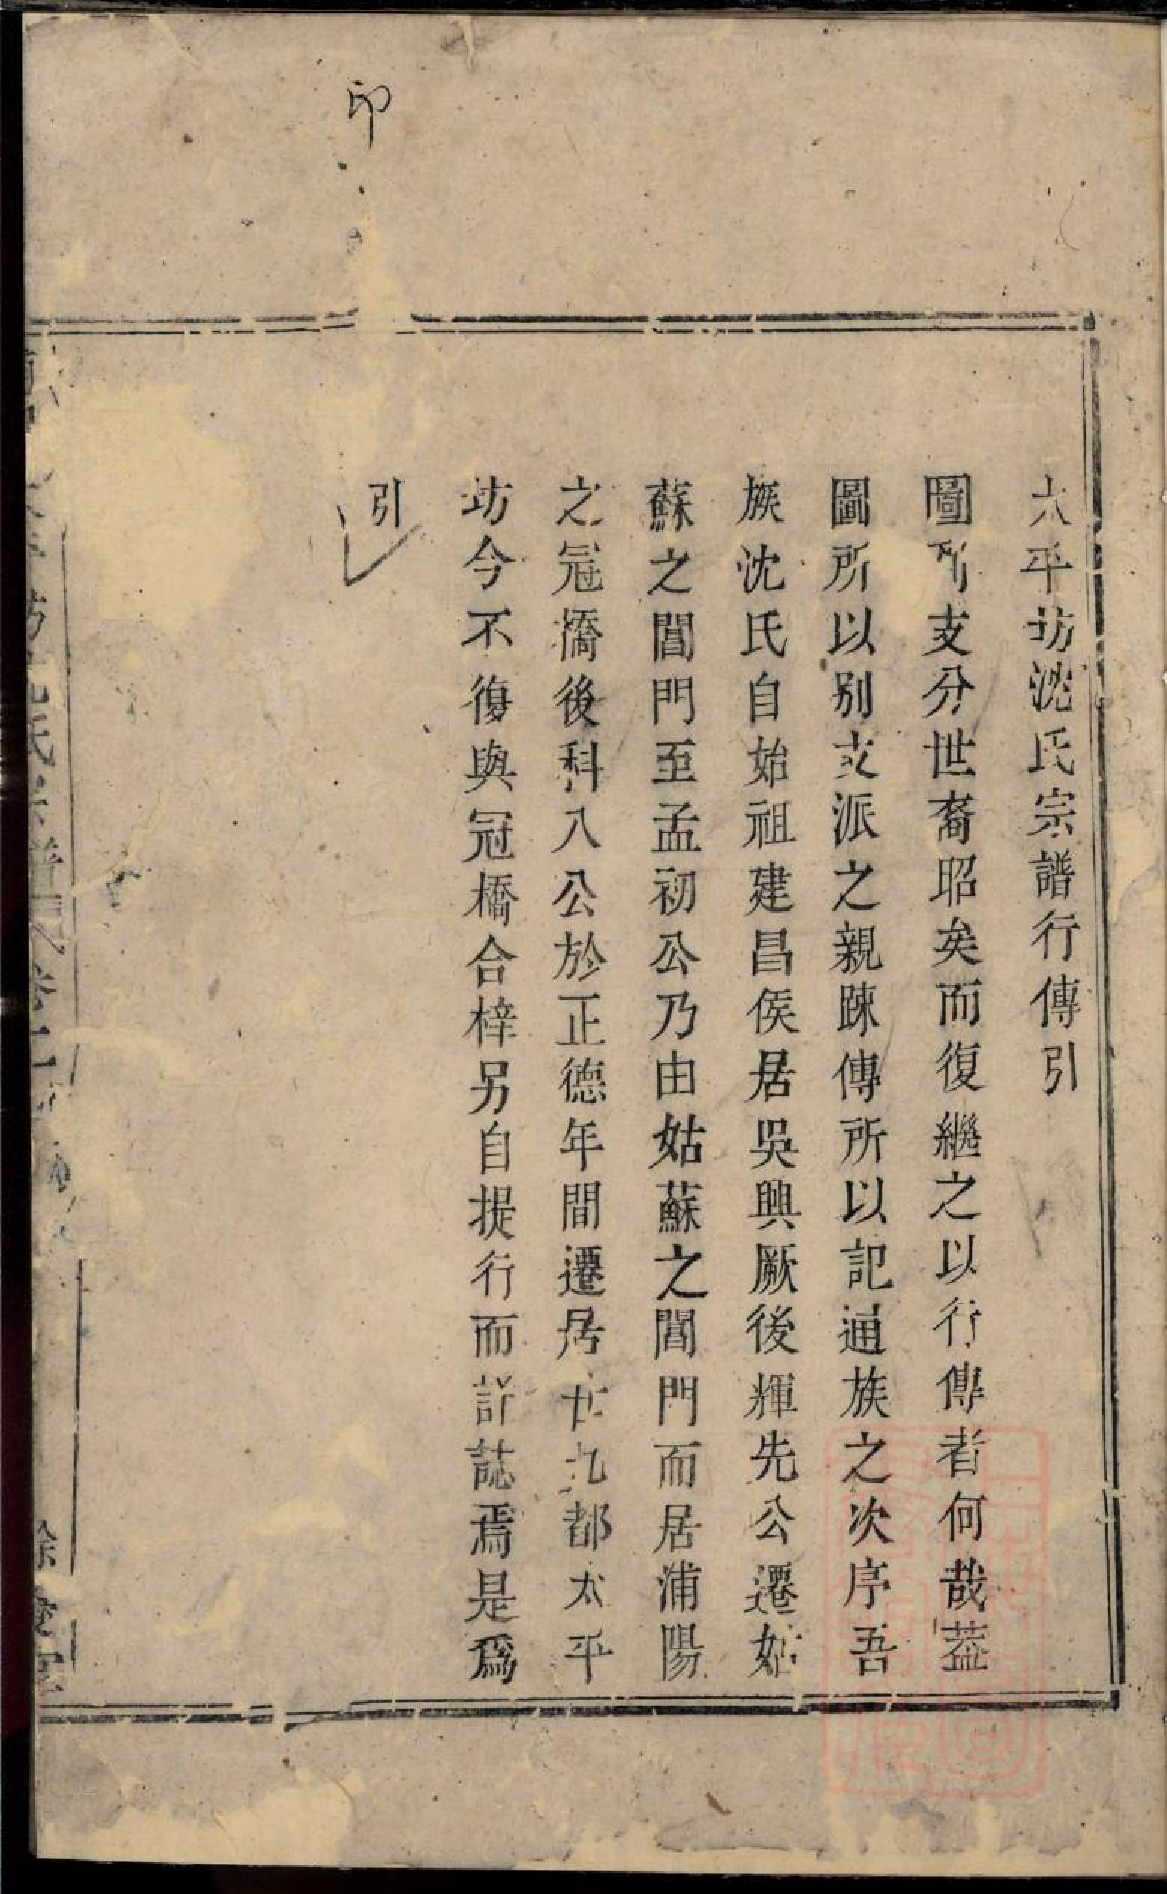 印
太平坊沈氏宗譜行傳引
圖列支分世裔昭矣而復繼之以行傳者何哉葢
圖所以别支派之親踈傳所以記通族之次序吾
族沈氏自始祖建昌侯居吳興厥後輝先公遷姑
蘇之閶門至孟初公乃由姑蘇之閶門而居浦陽
之冠橋後科八公於正德年間遷居廿九都太平
坊今不復與冠橋合梓另自提行而詳誌焉是爲
引
坊沈氏宗譜